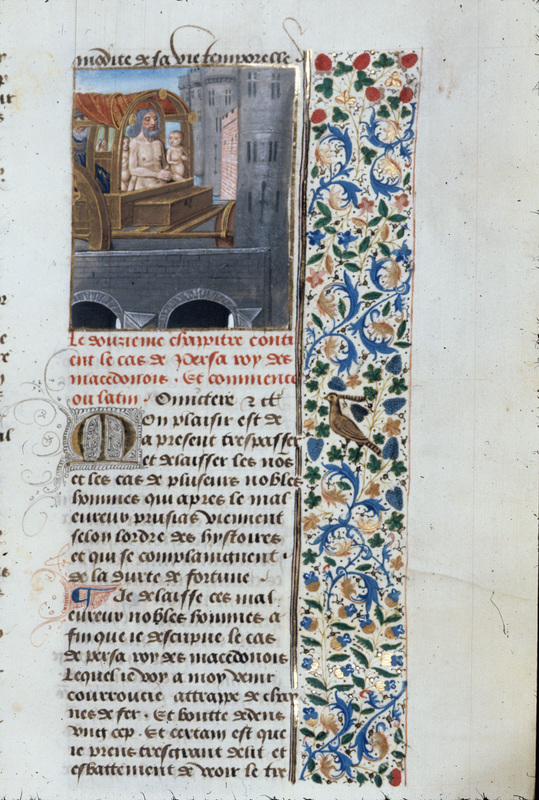 modite de sa vie temporelle
Le douzieme chappitre conti
ent le cas de persa roy des
macedonois. Et commence
ou latin. Omictere &
Mon plaisir est de
a present trespasser
et delaisser les nos
et les cas de plusieurs nobles
hommes qui apres le mal
eureux prusias viennent
selon lordre des hystoires
et qui se complaingnent
de la durte de fortune
Je delaisse ces mal
eureux nobles hommes a
fin que ie descripue le cas
de persa roy des macedonois
Lequel ie voy a moy venir
courroucie attrappe de chay
nes de fer. Et boutte dedens
vng cep. Et certain est que
ie prens tresgrant delit et
esbattement de veoir le tre